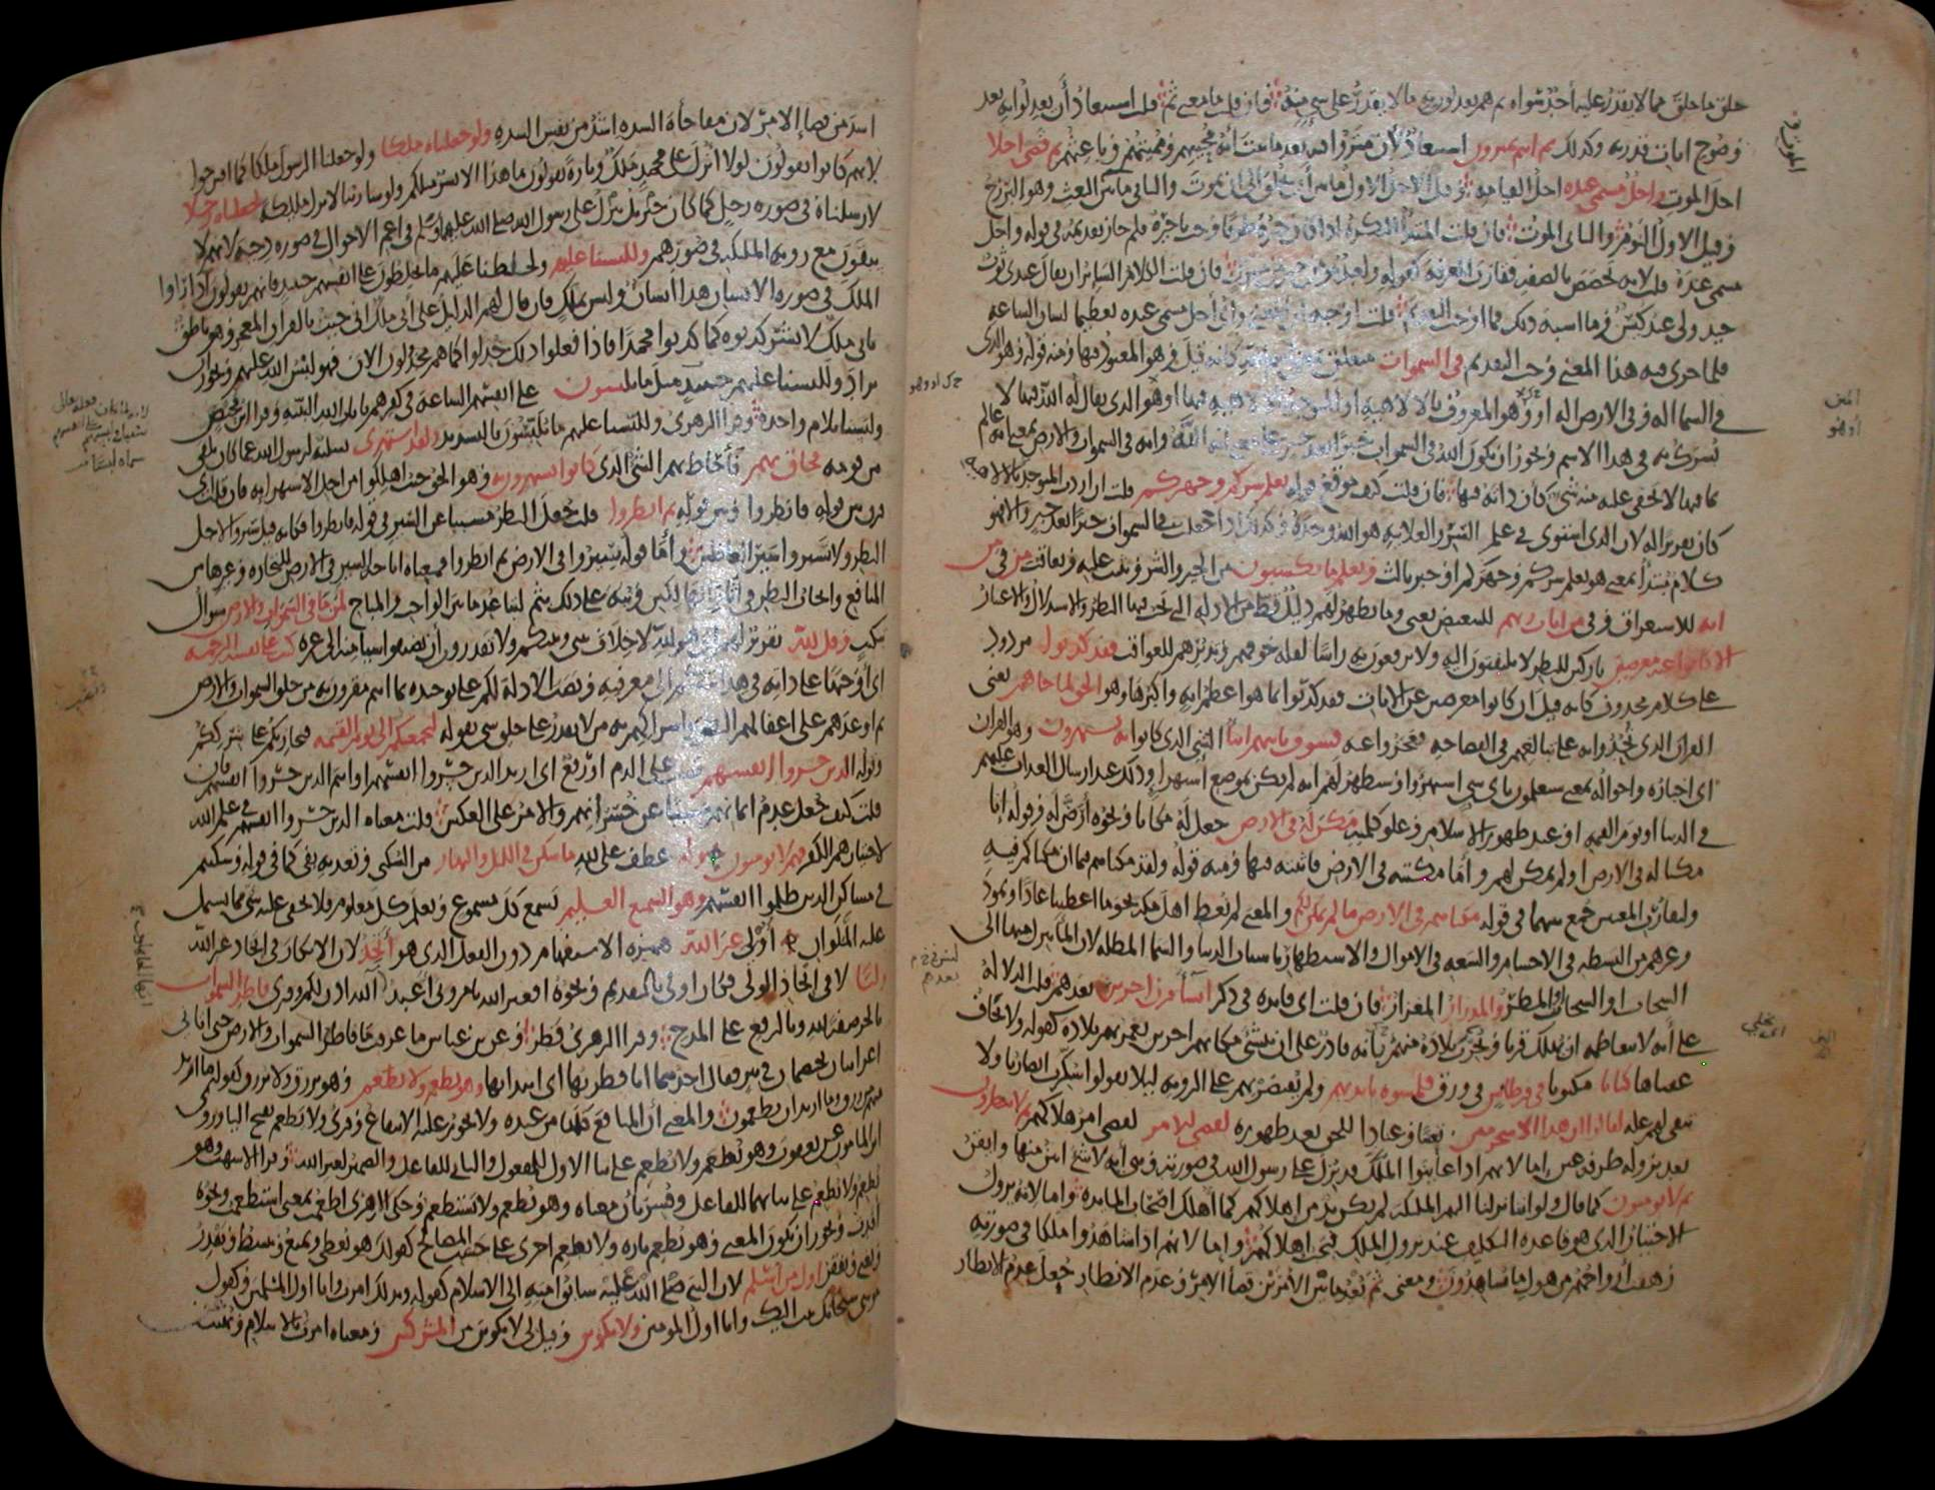 خلق ما خلق مما لا يقدر عليه أحد سواه ثم هم يعدلون به ما لا يقدر على شيء منه فان قلت ما معنى ثم قلت استبعاد أن يعدلوا به بعد
وضوح ايات قدرته وكذلك ثم انتم تمترون استبعاد لأن تمتروا فيه بعد ما ثبت أنه محييهم ومميتهم وباعثهم ثم قضى اجلا
اجل الموت واجل مسمى عنده اجل القيامة وقيل الاجل الاول ما بين أن يخلق الى ان يموت والثاني ما بين الموت والبعث وهو البرزخ
وقيل الاول النوم والثاني الموت فان قلت المبتدأ النكرة اذا كان خبره ظرفا وجب تاخيره فلم جاز تقديمه في قوله واجل
مسمى عنده قلت لانه تخصص بالصفة فقارب المعرفة كقوله ولعبد مؤمن خير من مشرك فان قلت الكلام السائر ان يقال عندي ثوب
جيد ولي عبد كيس وما اشبه ذلك فما اوجب التقديم قلت اوجبه أن المعنى وأي أجل مسمى عنده تعظيما لشان الساعة
فلما جرى فيه هذا المعنى وجب التقديم في السموات متعلق بمعنى اسم الله كانه قيل وهو المعبود فيها ومنه قوله وهو الذي
في السماء اله وفي الارض اله او وهو المعروف بالالاهية او المتوحد بالالاهية فيها او هو الذي يقال له الله فيها لا
يشرك به في هذا الاسم ويجوز ان يكون الله في السموات خبرا بعد خبر على معنى انه الله وانه في السموات والارض بمعنى انه عالم
بما فيهما لا يخفى عليه منه شيء كأن ذاته فيها فان قلت كيف موقع قوله يعلم سركم وجهركم قلت ان اردت المتوحد بالالاهية
كان تقريرا له لان الذي استوى في علمه السر والعلانية هو الله وحده وكذلك اذا جعلت في السموات خبرا بعد خبر والا فهو
كلام مبتدأ بمعنى هو يعلم سركم وجهركم او خبر ثالث ويعلم ما تكسبون من الخير والشر ويثيب عليه ويعاقب من في من
اية للاستغراق وفي من ايات ربهم للتبعيض يعني وما يظهر لهم دليل قط من الادلة التي يجب فيها النظر والاستدلال والاعتبار
الا كانوا عنه معرضين تاركين للنظر لا يلتفتون اليه ولا يرفعون به راسا لقلة خوفهم وتدبرهم للعواقب فقد كذبوا مردود
على كلام محذوف كانه قيل ان كانوا معرضين عن الايات فقد كذبوا بما هو اعظم اية واكبرها وهو الحق لما جاهم يعني
القران الذي تحدوا به على تبالغهم في الفصاحة فعجزوا عنه فسوف ياتيهم انباء الشيء الذي كانوا به يستهزون وهو القران
اي اخباره واحواله بمعنى سيعلمون باي شي استهزوا وسيظهر لهم انه لم يكن بموضع استهزاء وذلك عند ارسال العذاب عليهم
في الدنيا او يوم القيمة او عند ظهور الاسلام وعلو كلمته مكن له في الارض جعل له مكانا ونحوه أرض له وقوله إنا
مكنا له في الارض اولم نمكن لهم واما مكنته في الارض فاثبته فيها ومنه قوله ولقد مكناهم فيما ان مكناكم فيه
ولتقارب المعنيين جمع بينهما في قوله مكناهم في الارض ما لم نمكن لكم والمعنى لم نعط اهل مكة نحو ما اعطينا عادا وثمود
وغيرهم من البسطة في الاجسام والسعة في الاموال والاستظهار باسباب الدنيا والسماء المظلة لان الماء ينزل منها الى
السحاب او السحاب او المطر والمدرار المغزار فان قلت اي فايدة في ذكر انشا قرن اخرين بعدهم قلت الدلالة
على أنه لا يتعاظمه ان يهلك قرنا ويخرب بلاده منهم بانه قادر على ان ينشئ مكانهم اخرين يعمر بهم بلاده كقوله ولا يخاف
عقباها كتابا مكتوبا في قرطاس في ورق فلمسوه بايديهم ولم يقتصر بهم على الروية ليلا يقولوا سكرت ابصارنا ولا
تبقى لهم علة لقالوا ان هذا الا سحر مبين تعنتا وعنادا للحق بعد ظهوره لقضي الامر لقضي امر هلاكهم ثم لا ينظرون
بعد نزوله طرفة عين اما لانهم اذا عاينوا الملك قد نزل على رسول الله في صورته وهي آية لا شيء ابين منها وايقن
ثم لا يومنون كما قال ولو اننا نزلنا اليهم الملئكة لم يكن بد من اهلاكهم كما اهلك اصحاب المايدة واما لانه يزول
الاختيار الذي هو قاعدة التكليف عند نزول الملك فيجب اهلاكهم واما لانهم اذا شاهدوا ملكا في صورته
زهقت أرواحهم من هول ما يشاهدون ومعنى ثم بعد ما بين الامرين قضا الامر وعدم الانظار جعل عدم الانظار
اشد من قضا الامر لان مفاجأة الشدة اشد من نفس الشدة ولو جعلناه ملكا ولو جعلنا الرسول ملكا كما اقترحوا
لانهم كانوا يقولون لولا انزل على محمد ملك وتارة يقولون ما هذا الا بشر مثلكم ولو شا ربنا لانزل ملئكة لجعلناه رجلا
لارسلناه في صورة رجل كما كان جبريل ينزل على رسول الله صلى الله عليهما وسلم في اعم الاحوال في صورة دحية لانهم لا
يبقون مع روية الملئكة في صورهم وللبسنا عليهم ولخلطنا عليهم ما يخلطون على انفسهم حينيذ فانهم يقولون اذا راوا
الملك في صورة الانسان هذا انسان وليس بملك فان قال لهم الدليل على أني ملك اني جيت بالقران المعجز وهو ناطق
باني ملك لا بشر كذبوه كما كذبوا محمدا فاذا فعلوا ذلك خذلوا كما هم مخذولون الان فهو لبس الله عليهم ويجوز أن
يراد وللبسنا عليهم حينيذ مثل ما يلبسون على انفسهم الساعة في كفرهم بايات الله البينة وقرا ابن محيصن
ولبسنا بلام واحدة وقرا الزهري وللبسنا عليهم ما يلبسون بالتشديد ولقد استهزي تسلية لرسول الله عما كان يلقى
من قومه فحاق بهم فأحاط بهم الشي الذي كانوا يستهزون به وهو الحق حيث اهلكوا من اجل الاستهزا به فان قلت اي
فرق بين قوله فانظروا وبين قوله ثم انظروا قلت جعل النظر مسببا عن السير في قوله فانظروا فكانه قيل سيروا لاجل
النظر ولا تسيروا سير الغافلين وأما قوله سيروا في الارض ثم انظروا فمعناه اباحة السير في الارض للتجارة وغيرها من
المنافع وايجاب النظر في اثار الهالكين ونبه على ذلك بثم لتباعد ما بين الواجب والمباح لمن ما في السموات والارض سوال
تبكيت وقل لله تقرير لهم اي هو لله لا خلاف بيني وبينكم ولا تقدرون أن تضيفوا شيا منه الى غيره كتب على نفسه الرحمة
اي أوجبها على ذاته في هدايتكم الى معرفته ونصب الادلة لكم على توحيده بما انتم مقرون به من خلق السموات والارض
ثم اوعدهم على اغفالهم النظر واشراكهم به من لا يقدر على خلق شي بقوله ليجمعنكم الى يوم القيمة فيجازيكم على شرككم
وقوله الذين خسروا انفسهم نصب على الذم او رفع اي اريد الذين خسروا انفسهم او انتم الذين خسروا انفسهم فان
قلت كيف جعل عدم ايمانهم مسببا عن خسرانهم والامر على العكس قلت معناه الذين خسروا انفسهم في علم الله
لاختيارهم الكفر فهم لا يومنون وله عطف على لله ما سكن في الليل والنهار من السكنى وتعديه بفي كما في قوله وسكنتم
في مساكن الذين ظلموا انفسهم وهو السميع العليم يسمع كل مسموع ويعلم كل معلوم فلا يخفى عليه شي مما يشتمل
عليه الملوان أولي غير الله همزة الاستفهام دون الفعل الذي هو أتخذ لان الانكار في اتخاذ غير الله
وليا لا في اتخاذ الولي فكان اولى بالتقديم ونحوه افغير الله تامروني اعبد آلله اذن لكم وقري فاطر السموات
بالجر صفة لله وبالرفع على المدح وقرا الزهري فطر وعن بن عباس ما عرفت ما فاطر السموات والارض حتى اتاني
اعرابيان يختصمان في بير فقال احدهما انا فطرتها اي ابتداتها وهو يطعم ولا يطعم وهو يرزق ولا يرزق كقوله ما اريد
منهم من رزق وما اريد ان يطعمون والمعنى أن المنافع كلها من عنده ولا يجوز عليه الانتفاع وقري ولا يطعم بفتح اليا وروى
ابن المامون عن يعقوب وهو يطعم ولا يطعم على بنا الاول للمفعول والثاني للفاعل والضمير لغير الله وقرا الاشهب وهو
يطعم ولا يطعم على بنائهما للفاعل وفسر بان معناه وهو يطعم ولا يستطعم وحكى الازهري اطعمت بمعنى استطعمت ونحوه
افدت ويجوز ان يكون المعنى وهو يطعم تارة ولا يطعم اخرى على حسب المصالح كقولك هو يعطي ويمنع ويبسط ويقدر
ويغني ويفقر اول من اسلم لان النبي صلى الله عليه سابق امته الى الاسلام كقوله وبذلك امرت وانا اول المسلمين وكقول
موسى سبحانك تبت اليك وانا اول المومنين ولا تكونن وقيل لي لا تكونن من المشركين ومعناه امرت بالاسلام ونهيت